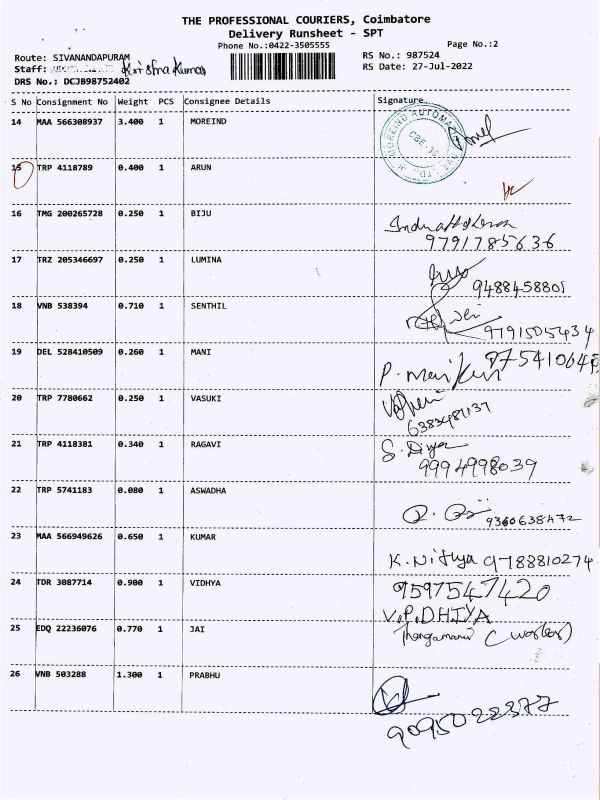 THE PROFESSIONAL COURIERS, Coimbatore
Delivery Runsheet - SPT
Phone No.:0422-3505555
Page No.:2
Route: SIVANANDAPURAM
RS No.: 987524
Staff: Krishna Kumar
RS Date: 27-Jul-2022
DRS No.: DCJB98752402
S No Consignment No Weight PCS Consignee Details Signature
14 MAA 566308937 3.400 1 MOREIND
MOREIND AUTOMA
CBE-35
15 TRP 4118789 0.400 1 ARUN
16 TMG 200265728 0.250 1 BIJU
9791785636
17 TRZ 205346697 0.250 1 LUMINA
9488458801
18 VNB 538394 0.710 1 SENTHIL
9791505434
19 DEL 528410509 0.260 1 MANI
P. Mani
20 TRP 7780662 0.250 1 VASUKI
6383481137
21 TRP 4118381 0.340 1 RAGAVI
S. Divya
9994998039
22 TRP 5741183 0.080 1 ASWADHA
9360638472
23 MAA 566949626 0.650 1 KUMAR
K. Nithya 9788810274
24 TDR 3087714 0.900 1 VIDHYA
9597547420
V.P.DHIYA
25 EDQ 22236076 0.770 1 JAI
Thangamani (worker)
26 VNB 503288 1.300 1 PRABHU
9095022377